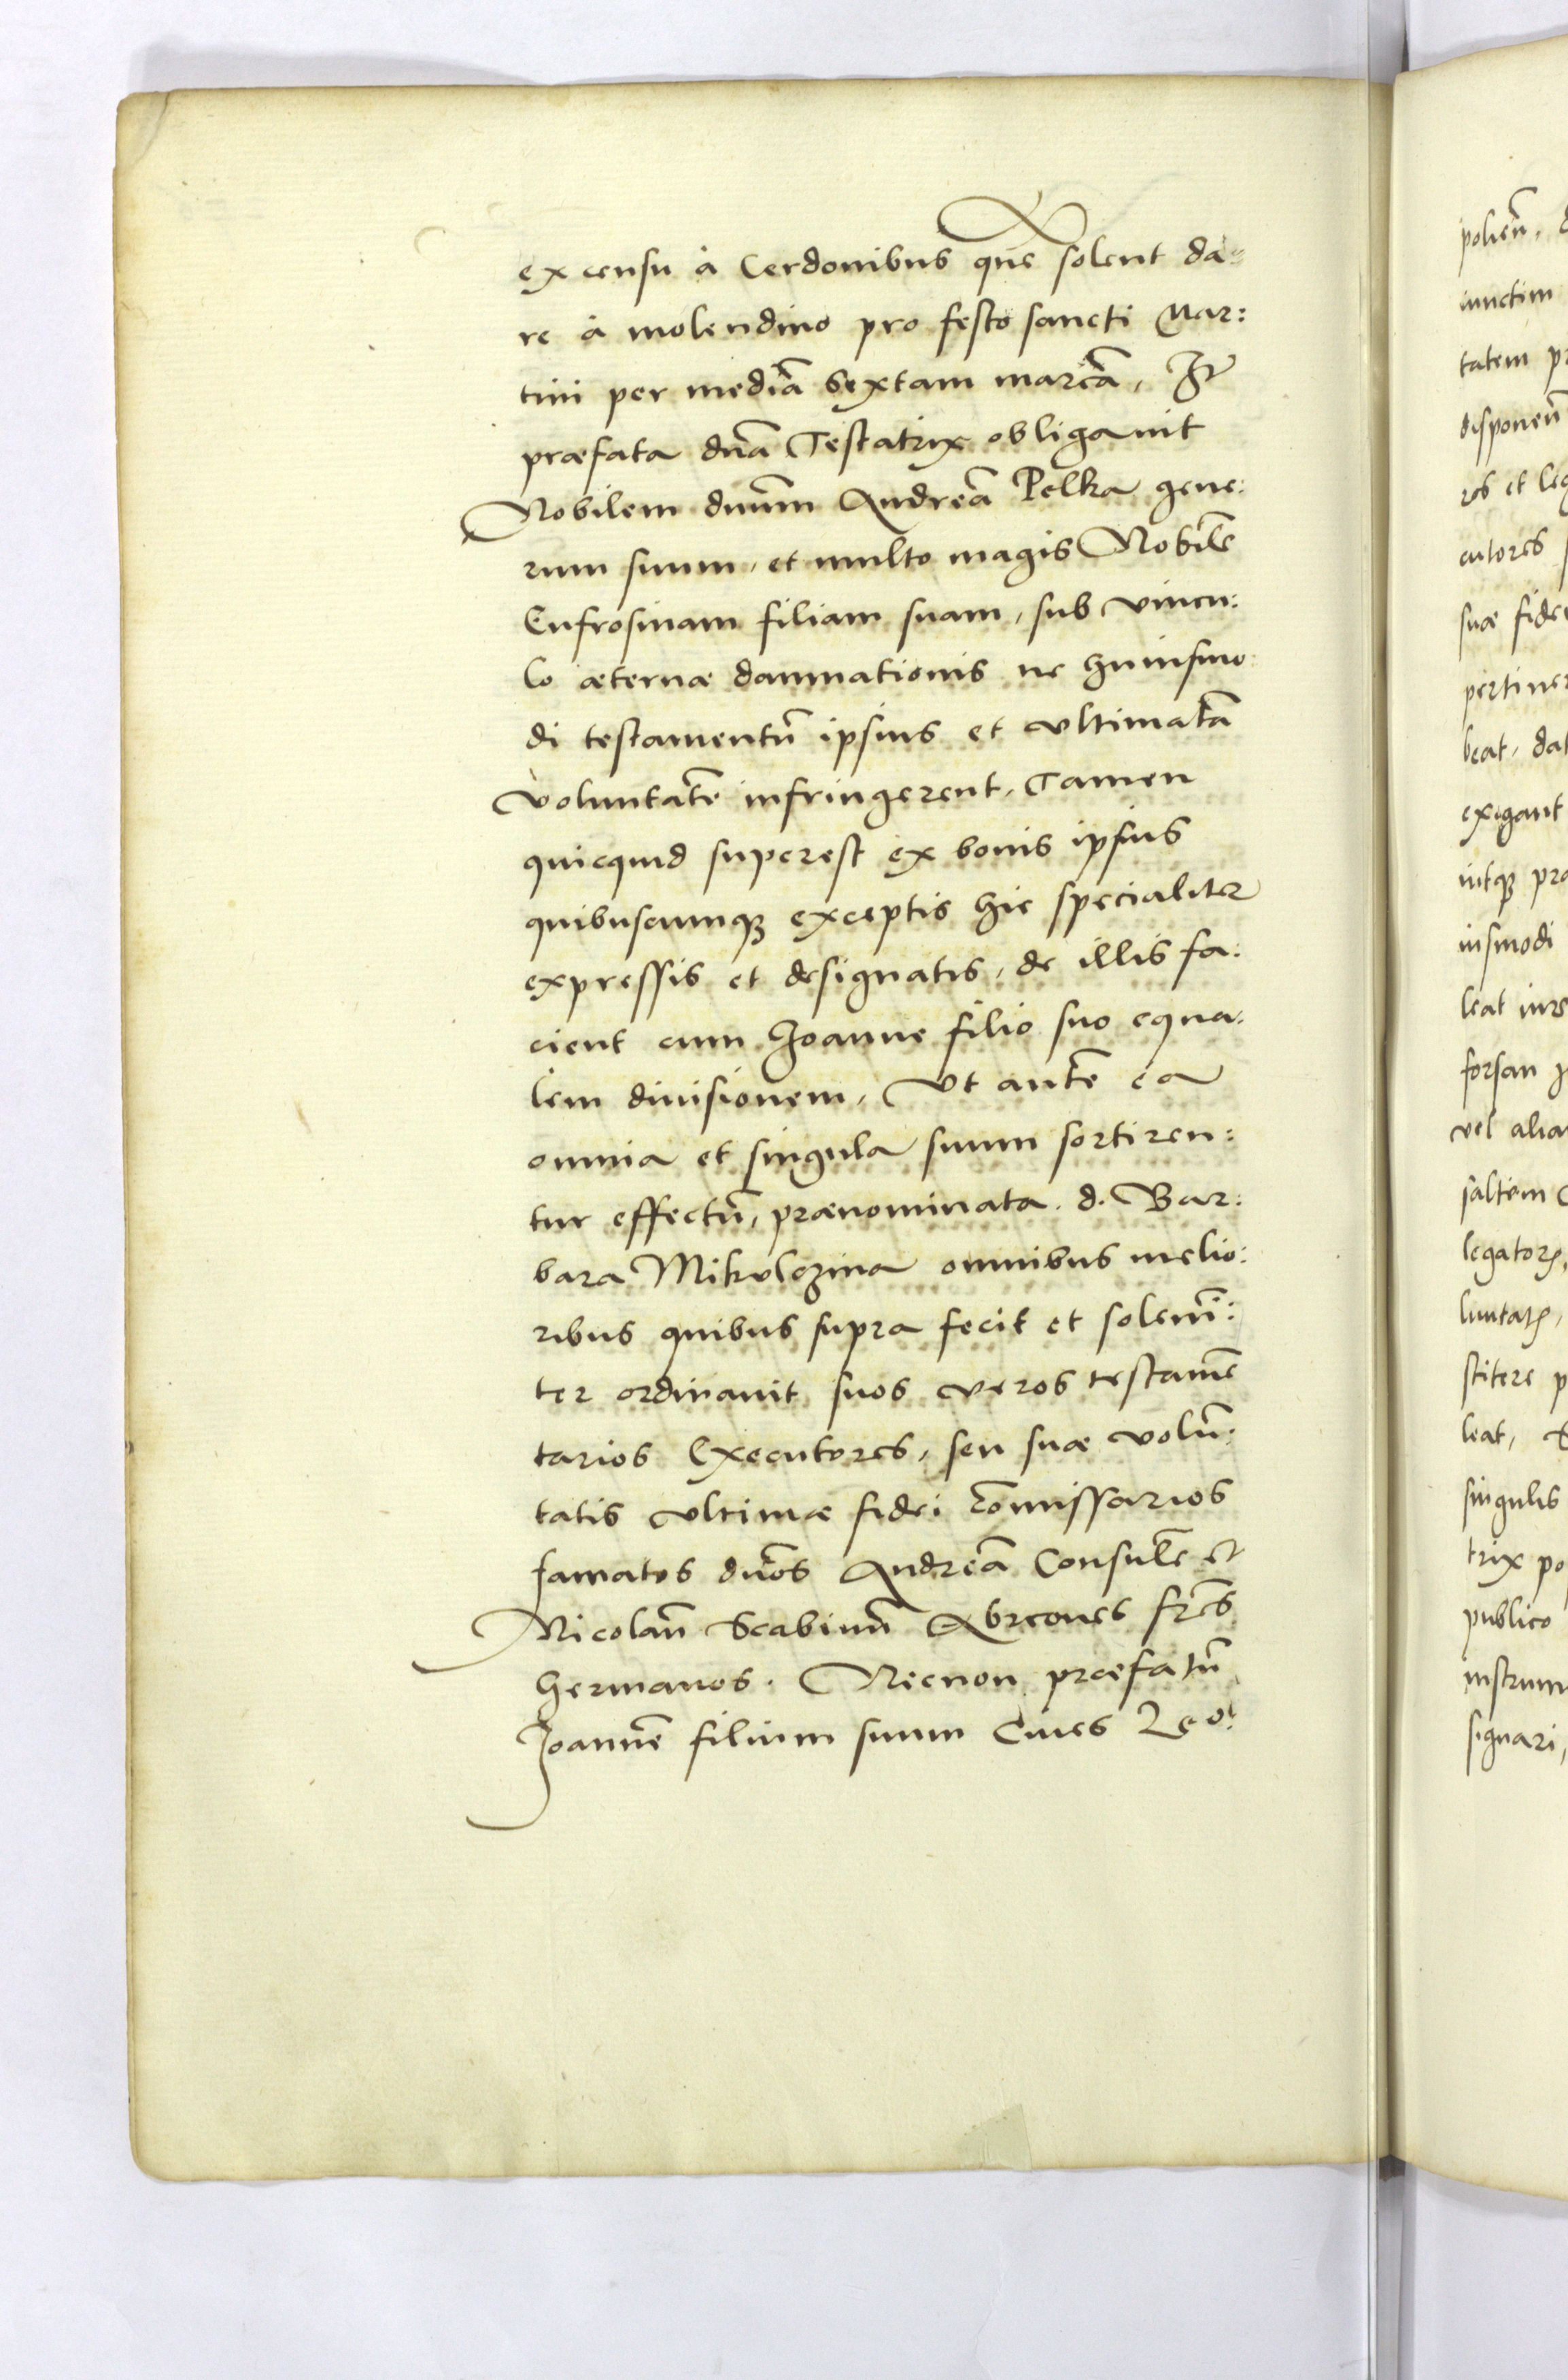 ex censu à Cerdonibus que solent da:
re à molendino pro festo sancti Mar:
tini per mediā sextam marcā, Itē
præfata dn̄a Testatrix obligauit
Nobilem dn̄um Andreā Pelka gene:
rum suum, et multo magis Nobilē
Eufrosinam filiam suam, sub vincu:
lo æternæ damnationis ne huiusmo:
di testamentū ipsius et vltimatā
voluntatē infringerent, Tamen
quicquid superest ex bonis ipsius
quibuscumqꝫ exceptis hic specialiter
expressis et designatis, de illis fa:
cient cum Joanne filio suo equa:
lem diuisionem, Vt autē ea
omnia et singula suum sortiren:
tur effectū, prænominata d. Bar:
bara Mikolczina omnibus melio:
ribus quibus supra fecit et solenni:
ter ordinauit suos veros testamē
tarios Executores, seu suæ volū:
tatis vltimæ fidei cōmissarios
famatos dn̄os Andreā Consulē et
Nicolaū Scabinū frēs
hermanos. Necnon præfatū
Joannē filium suum Ciues Leo:
poliēn,
iunctim
tatem
disponen̄
ros et
cutores
suæ
pertine
beat,
exigant
iutqꝫ
iusmodi
leat
forsan
vel
saltem
legatorꝫ,
stitere
leat,
singulis
trix
publico
signari,